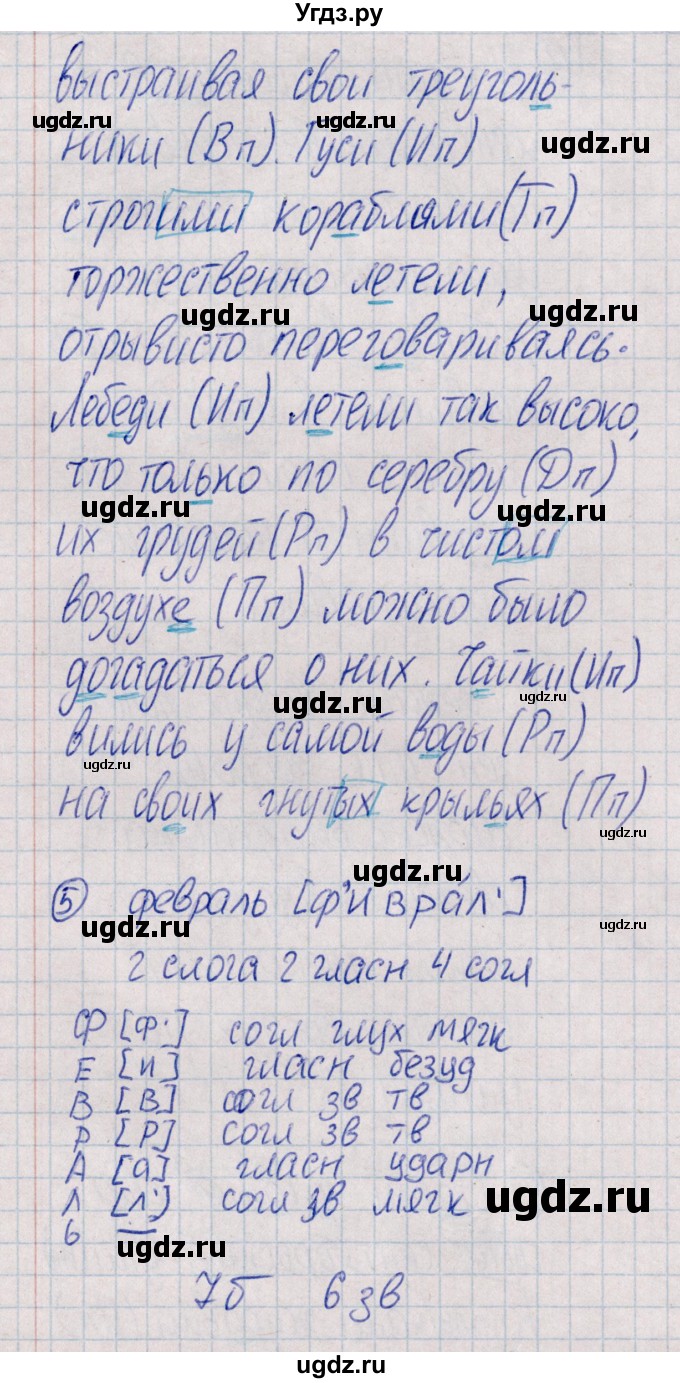 Угдз.ру
выстраивая свои треуголь-
ugdz.ru ugdz.ru
ники (Вп). Гуси (Ип)
ugdz.ru
строгими кораблями (Тп)
торжественно летели,
ugdz.ru ugdz.ru
отрывисто переговариваясь.
Лебеди (Ип) летели так высоко,
что только по серебру (Дп)
ugdz.ru ugdz.ru
их грудей (Рп) в чистом
воздухе (Пп) можно было
догадаться о них. Чайки (Ип)
ugdz.ru
вились у самой воды (Рп)
ugdz.ru
на своих гнутых крыльях (Пп)
ugdz.ru
ugdz.ru
⑤ февраль [ф'иврáл']
ugdz.ru ugdz.ru
2 слога 2 гласн 4 согл
Ф [ф'] согл глух мягк
Е [и] гласн безуд
В [в] согл зв тв
Р [р] согл зв тв
А [а] гласн ударн
Л [л'] согл зв мягк
ugdz.ru
ь —
ugdz.ru
7б 6 зв
ugdz.ru